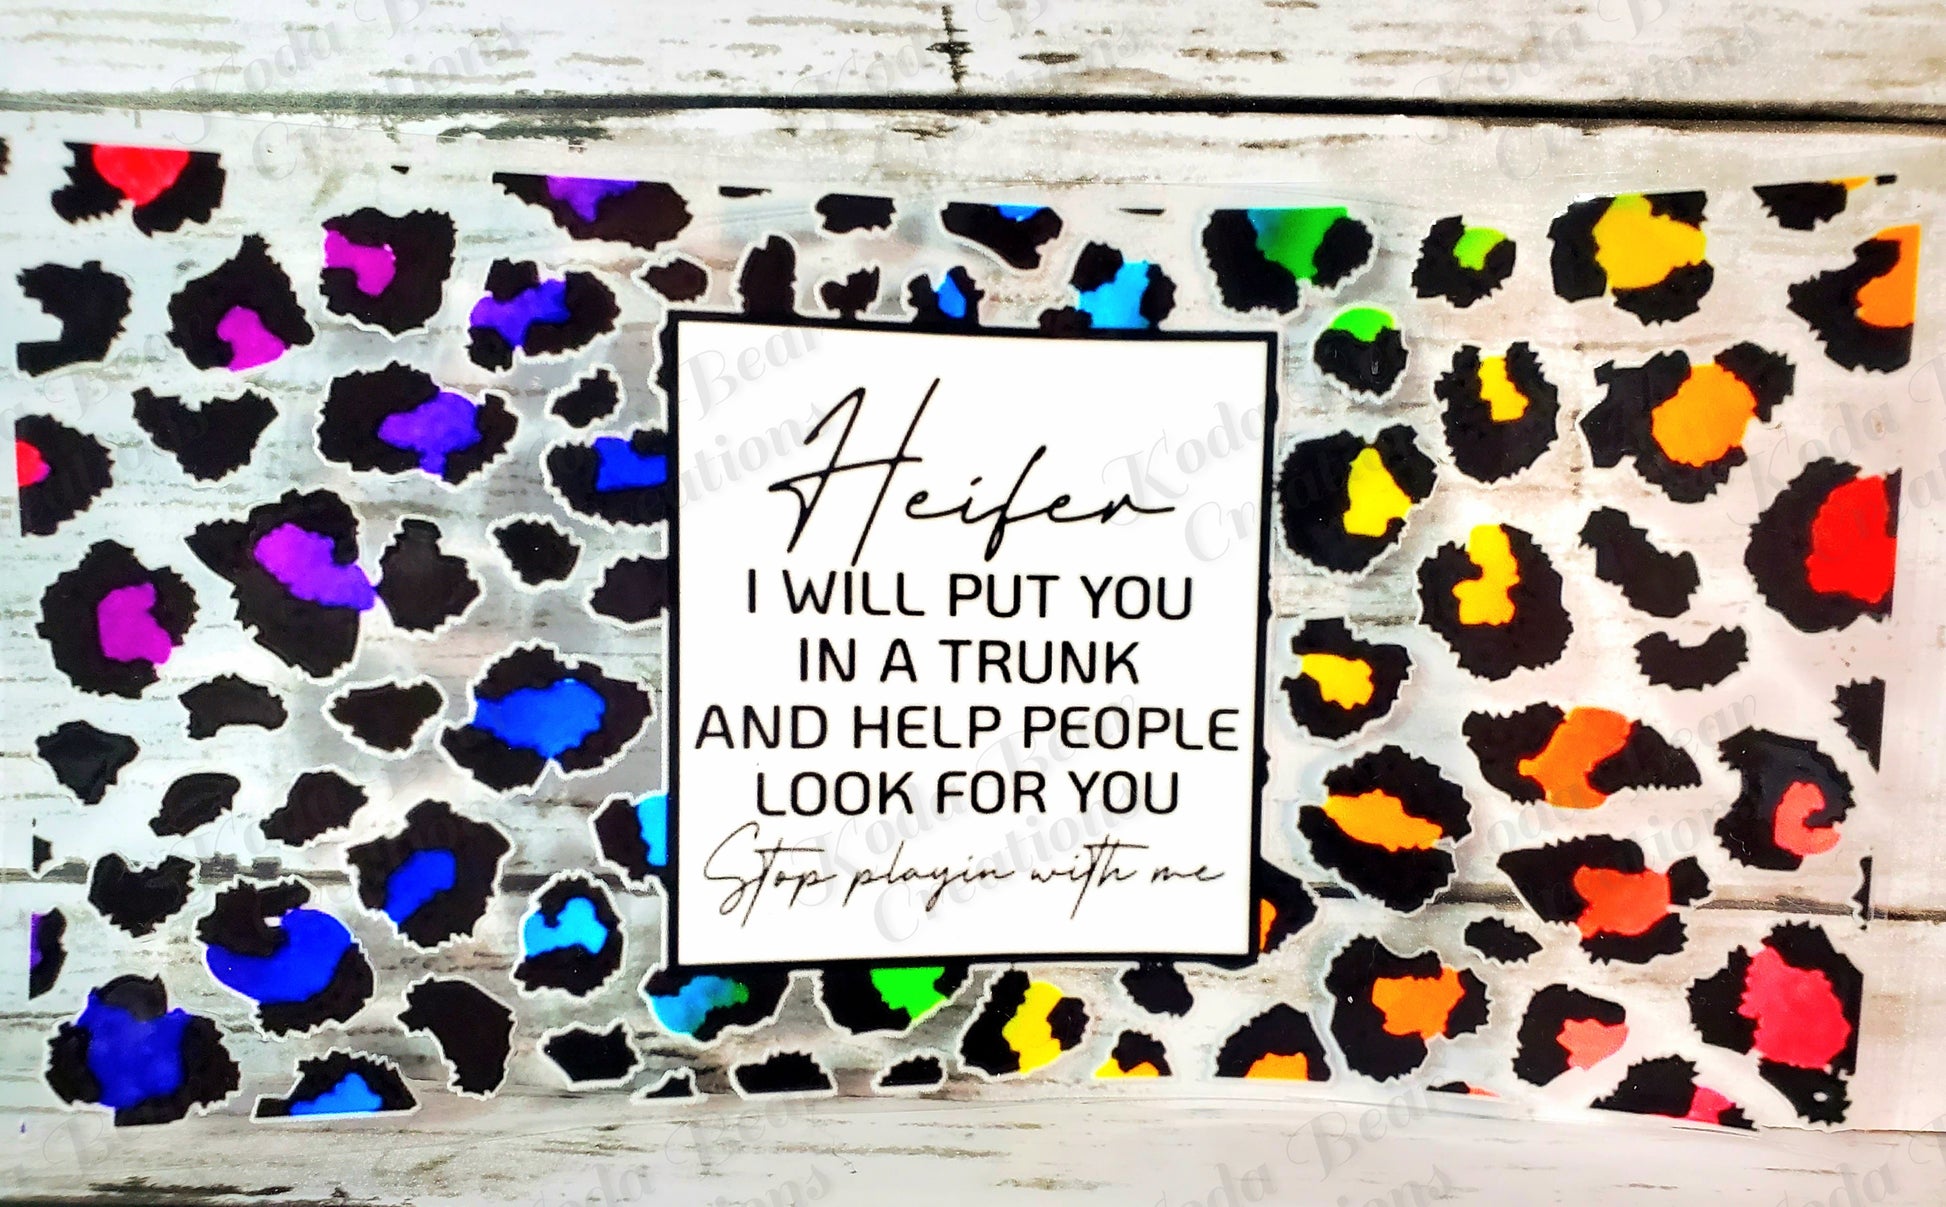 Heifer
I WILL PUT YOU
IN A TRUNK
AND HELP PEOPLE
LOOK FOR YOU
Stop playin with me
Koda Bear
Creations